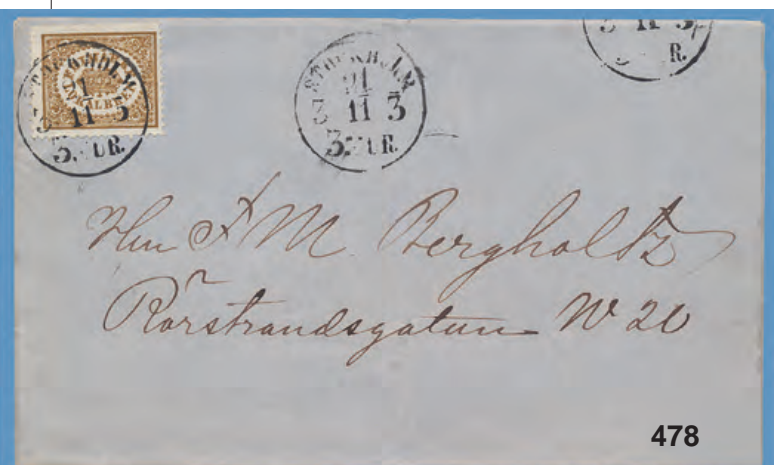 STOCKHOLM
21
3 11 3
3. TUR.
STOCKHOLM
21
3 11 3
3. TUR.
3 11 3
R.
Herr F M Bergholtz
Rörstrandsgatan N 20
478